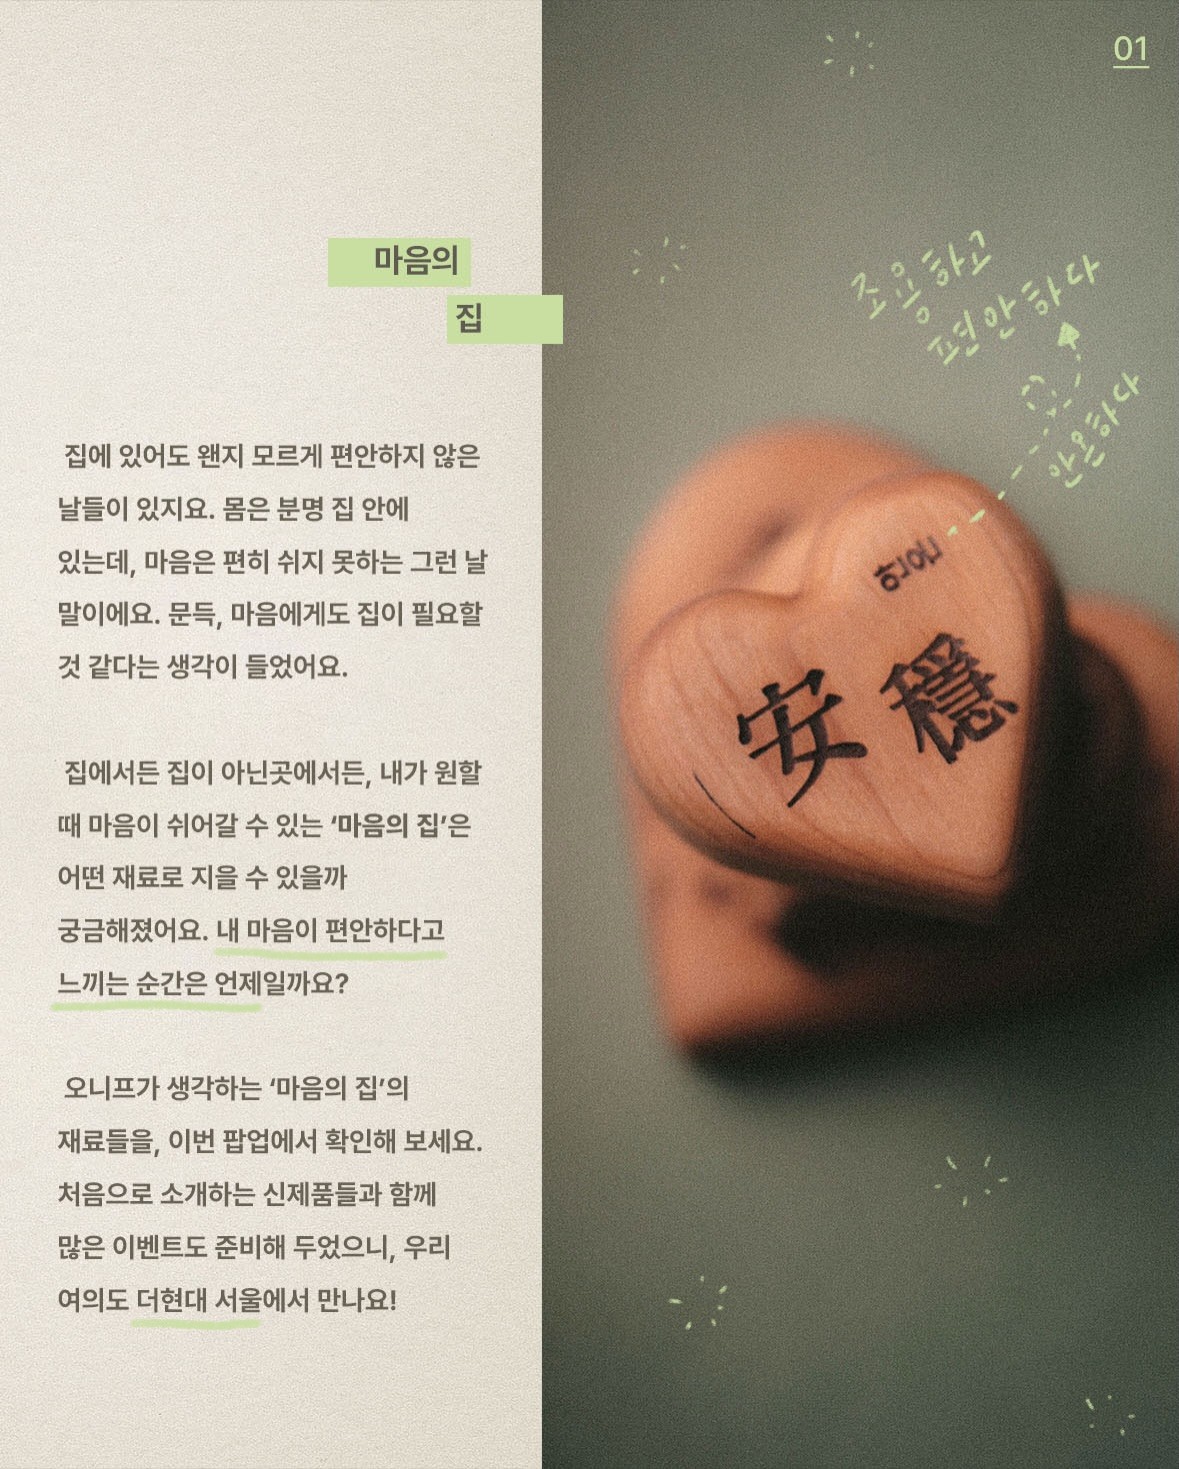 01
마음의
집
집에 있어도 왠지 모르게 편안하지 않은
날들이 있지요. 몸은 분명 집 안에
있는데, 마음은 편히 쉬지 못하는 그런 날
말이에요. 문득, 마음에게도 집이 필요할
것 같다는 생각이 들었어요.
집에서든 집이 아닌곳에서든, 내가 원할
때 마음이 쉬어갈 수 있는 ‘마음의 집’은
어떤 재료로 지을 수 있을까
궁금해졌어요. 내 마음이 편안하다고
느끼는 순간은 언제일까요?
오니프가 생각하는 ‘마음의 집’의
재료들을, 이번 팝업에서 확인해 보세요.
처음으로 소개하는 신제품들과 함께
많은 이벤트도 준비해 두었으니, 우리
여의도 더현대 서울에서 만나요!
조용하고
편안하다
안온하다
安穩